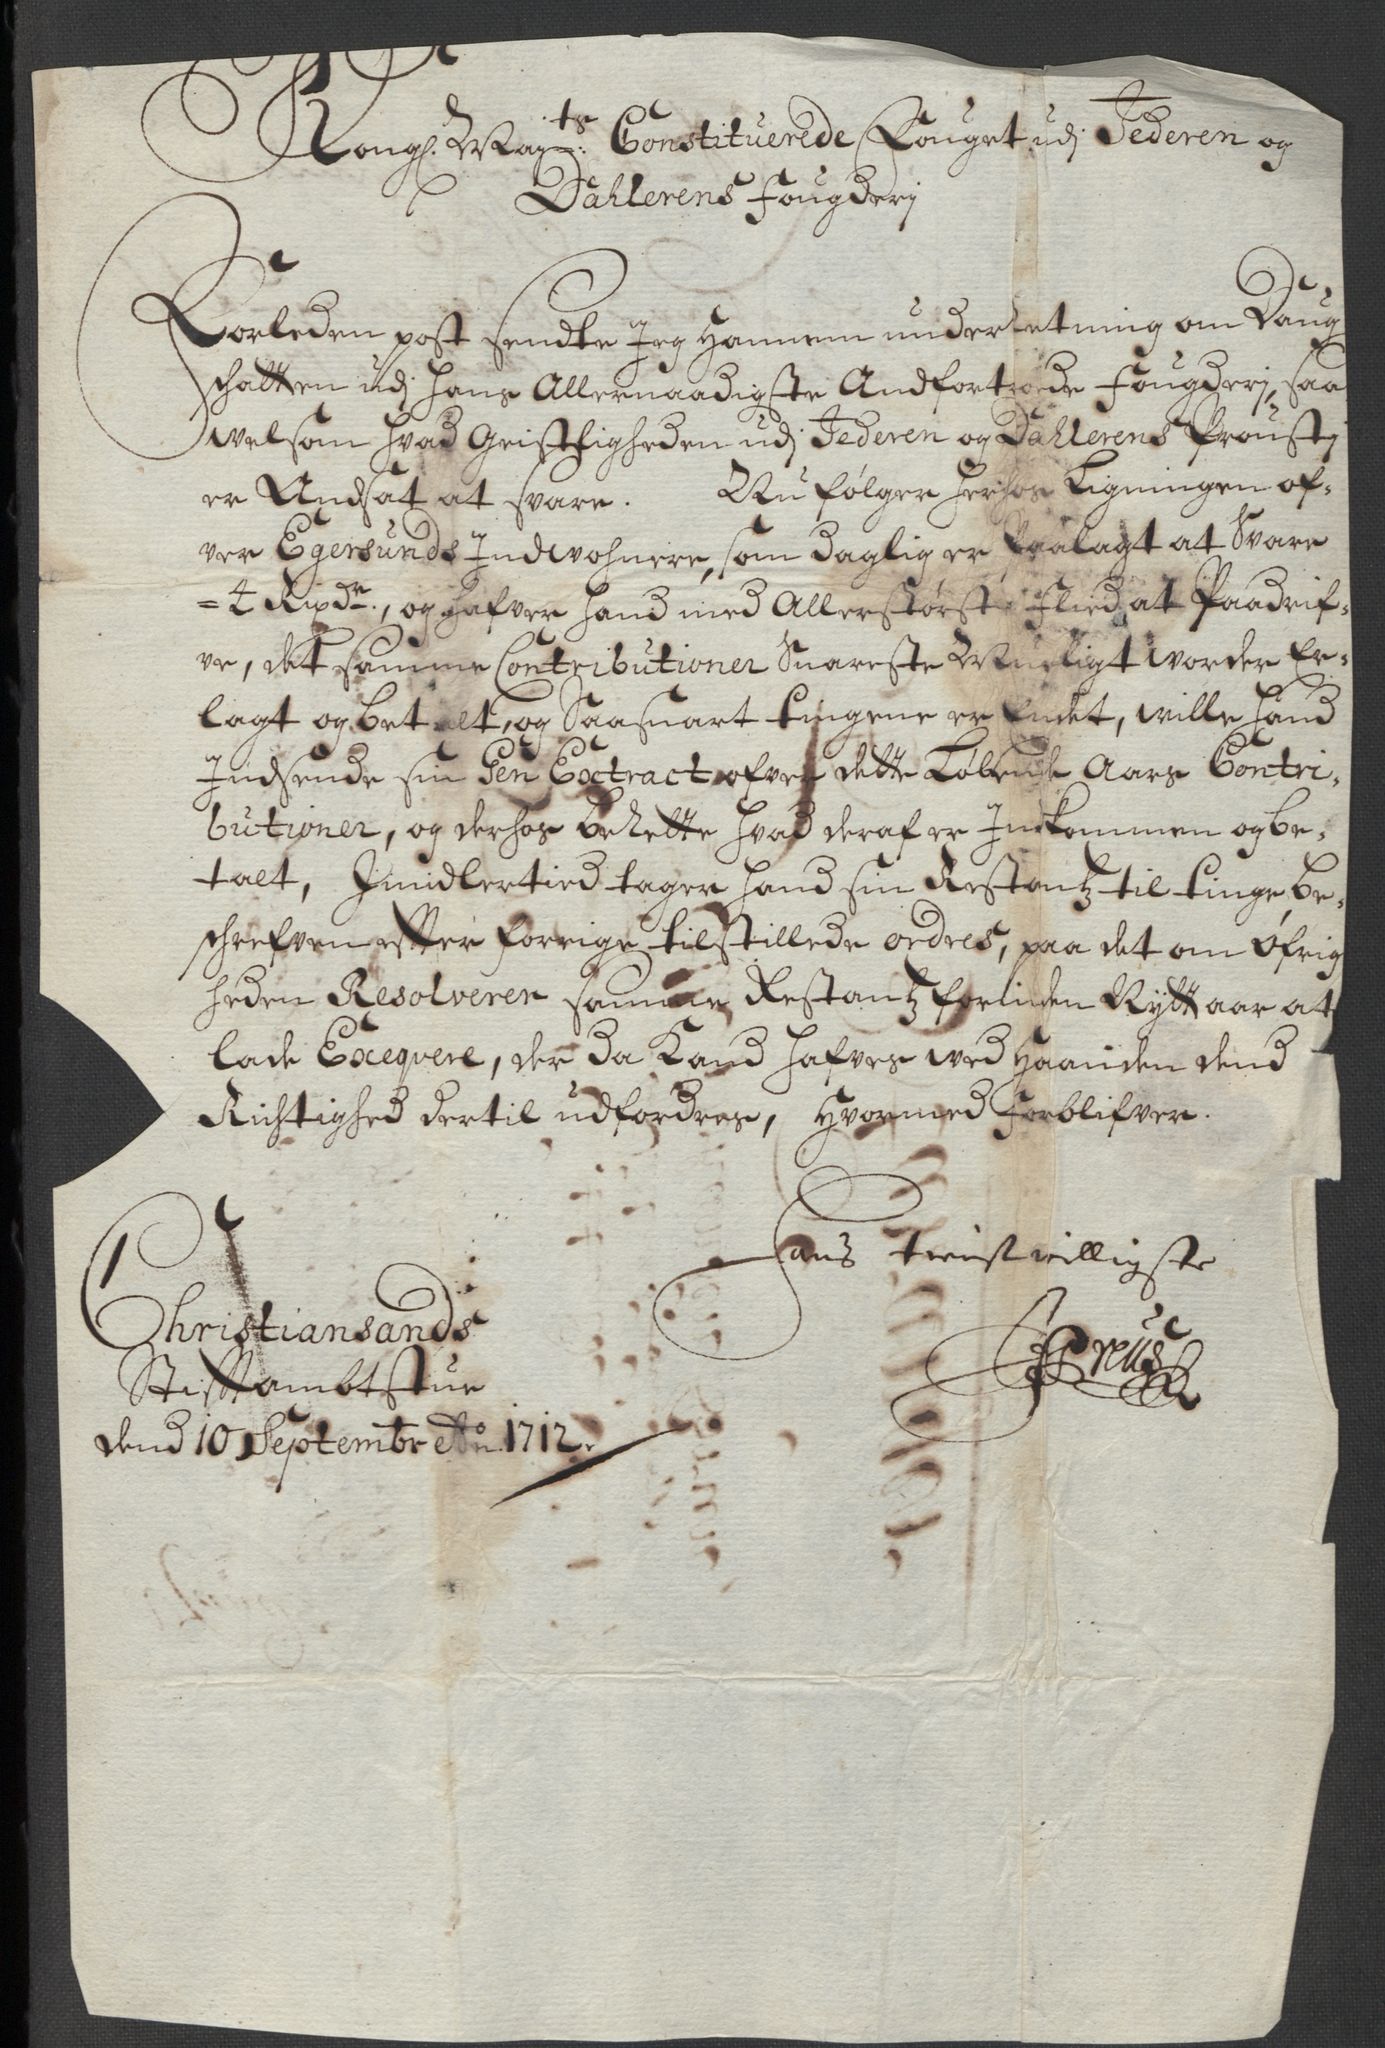 Kongl. Mayts: Constituerede Fouget udj Jederen og
Dahlerens Fougderj
Forleden post sendte Jeg Hannem underretning om Daug
schatten udj hans Allernaadigste Andfortroede Fougderj, saa
velsom hvad Geistligheden udj Jederen og Dahlerens Proustj
er Andsat at svare. Nu følger herhos Ligningen of-
ver Egersunds Indwohnere, som daglig er Paalagt at Svare
= 4 Rixdr., og hafver hand med Allerstørste Flied at Paadrif-
ve, det samme Contributioner Snareste Mueligt vorder Er-
lagt og betalt, og Saasnart tingene er Endet, wille hand
Indsende sin Gen Extract ofver dette Løbende Aars Contri-
butioner, og derhos berette hvad deraf er Indkommen og be-
talt, Imidlertied tager hand sin Restantz til tinge be-
schrefven effter forrige tilstillede ordres, paa det om Øfrig
heden Resolverer samme Restantz forinden Nytt aar at
lade Exeqvere, der da Kand hafves ved Haanden dend
Richtighed dertil udfordres, Hvormed Forblifver.
Hans tienstvilligste
Christiansands
Stifftambtstue
dend 10 Septembr Ao. 1712.